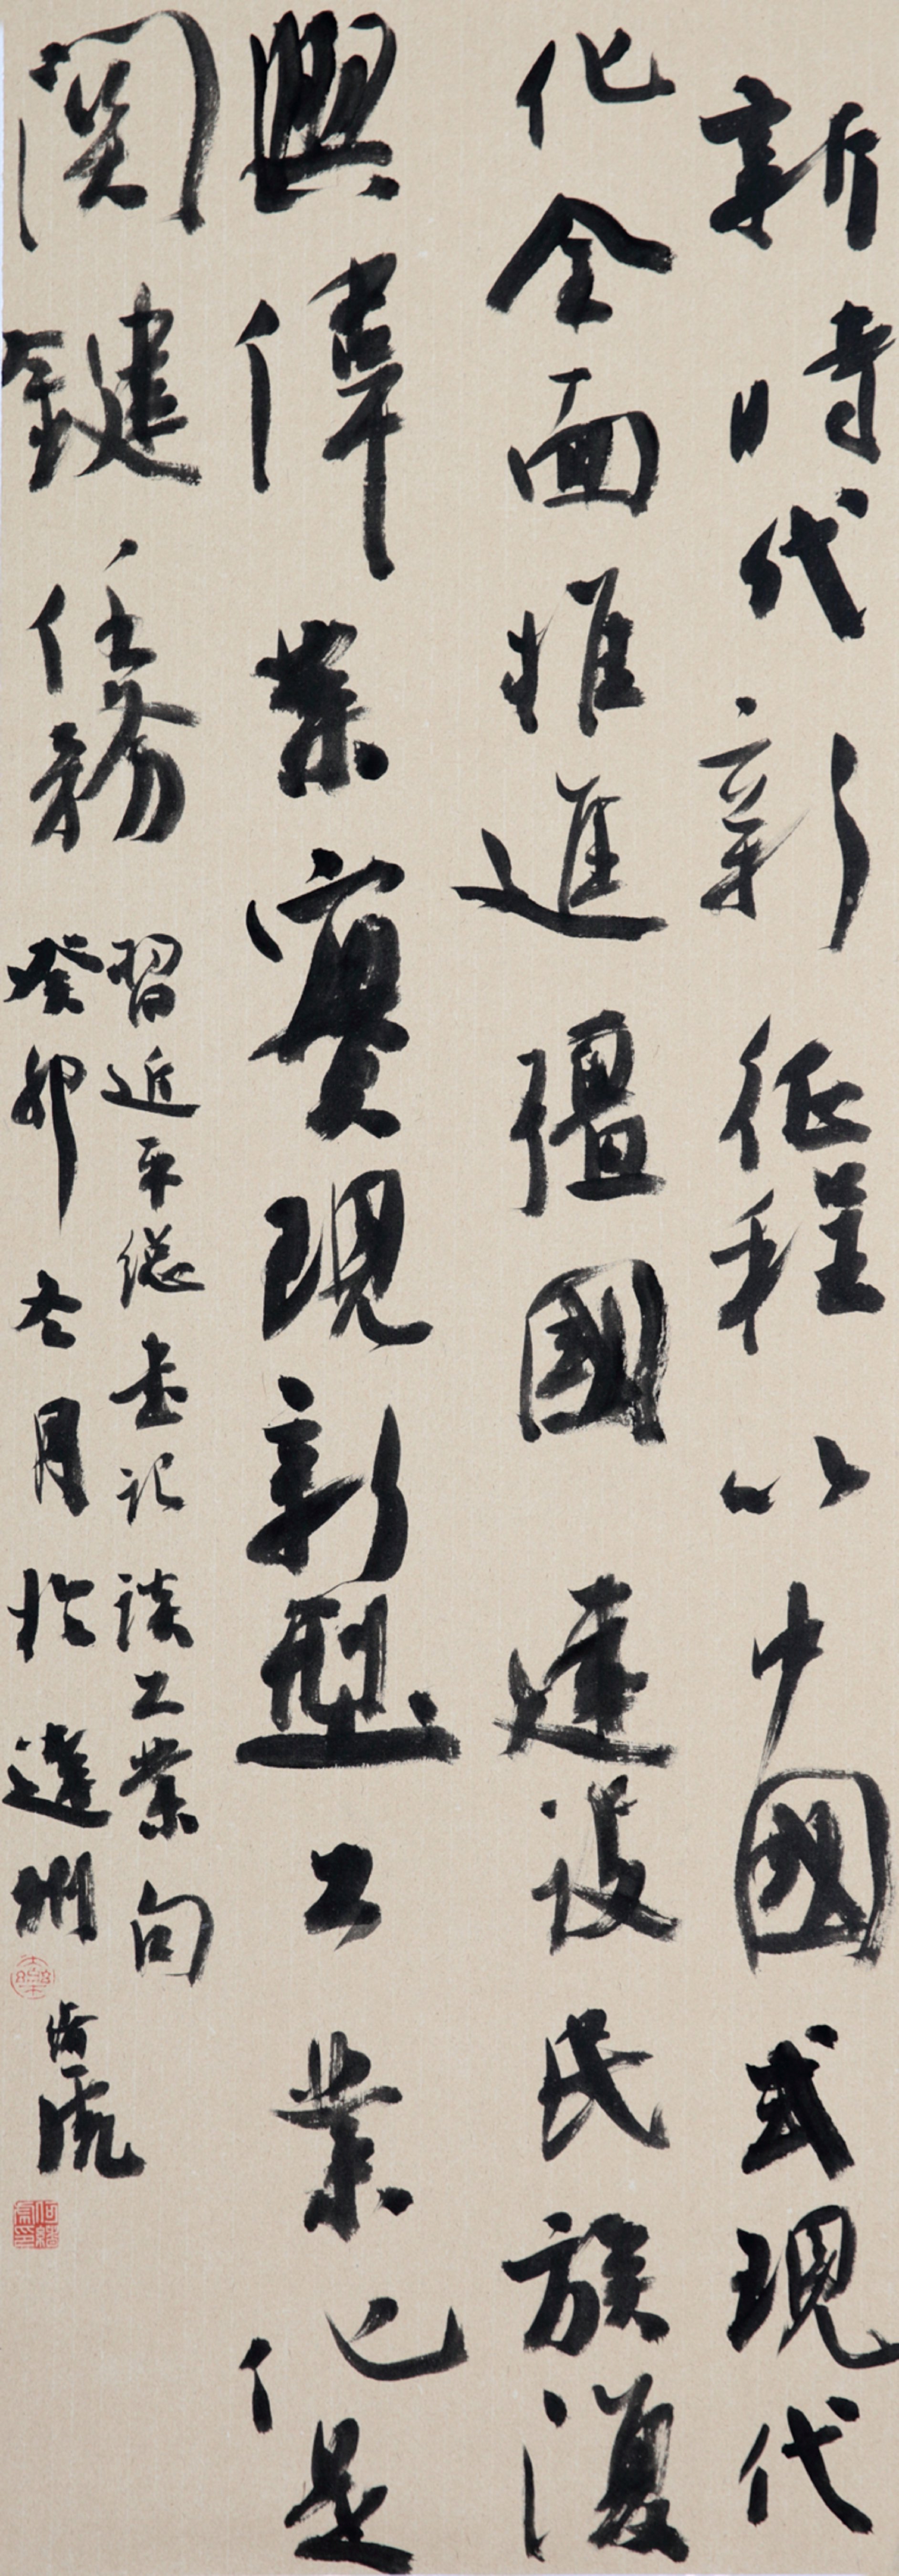 新時代新征程以中國式現代
化全面推進彊國建設民族復
興偉業實現新型工業化是
関鍵任務
習近平総书記談工業句
癸卯冬月於達州